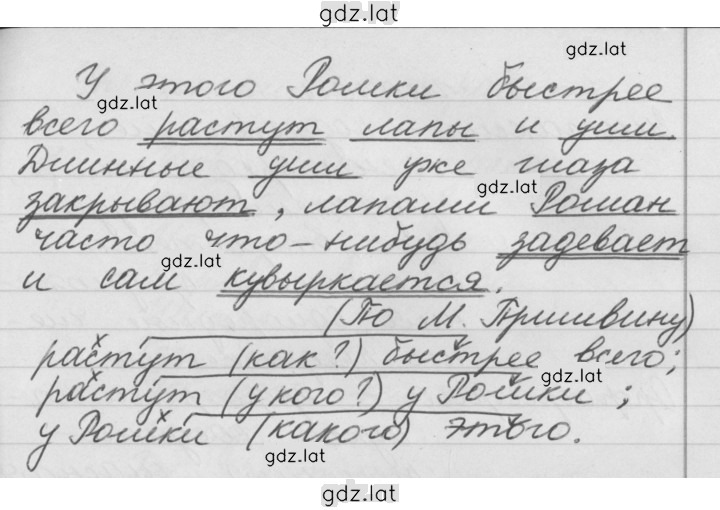 gdz.lat
gdz.lat
У этого Ромки быстрее
gdz.lat
всего растут лапы и уши.
Длинные уши уже глаза
gdz.lat
закрывают, лапами Роман
часто что-нибудь задевает
gdz.lat
и сам кувыркается.
(По М. Пришвину)
растут (как?) быстрее всего;
gdz.lat
растут (у кого?) у Ромки;
у Ромки (какого) этого.
gdz.lat
gdz.lat